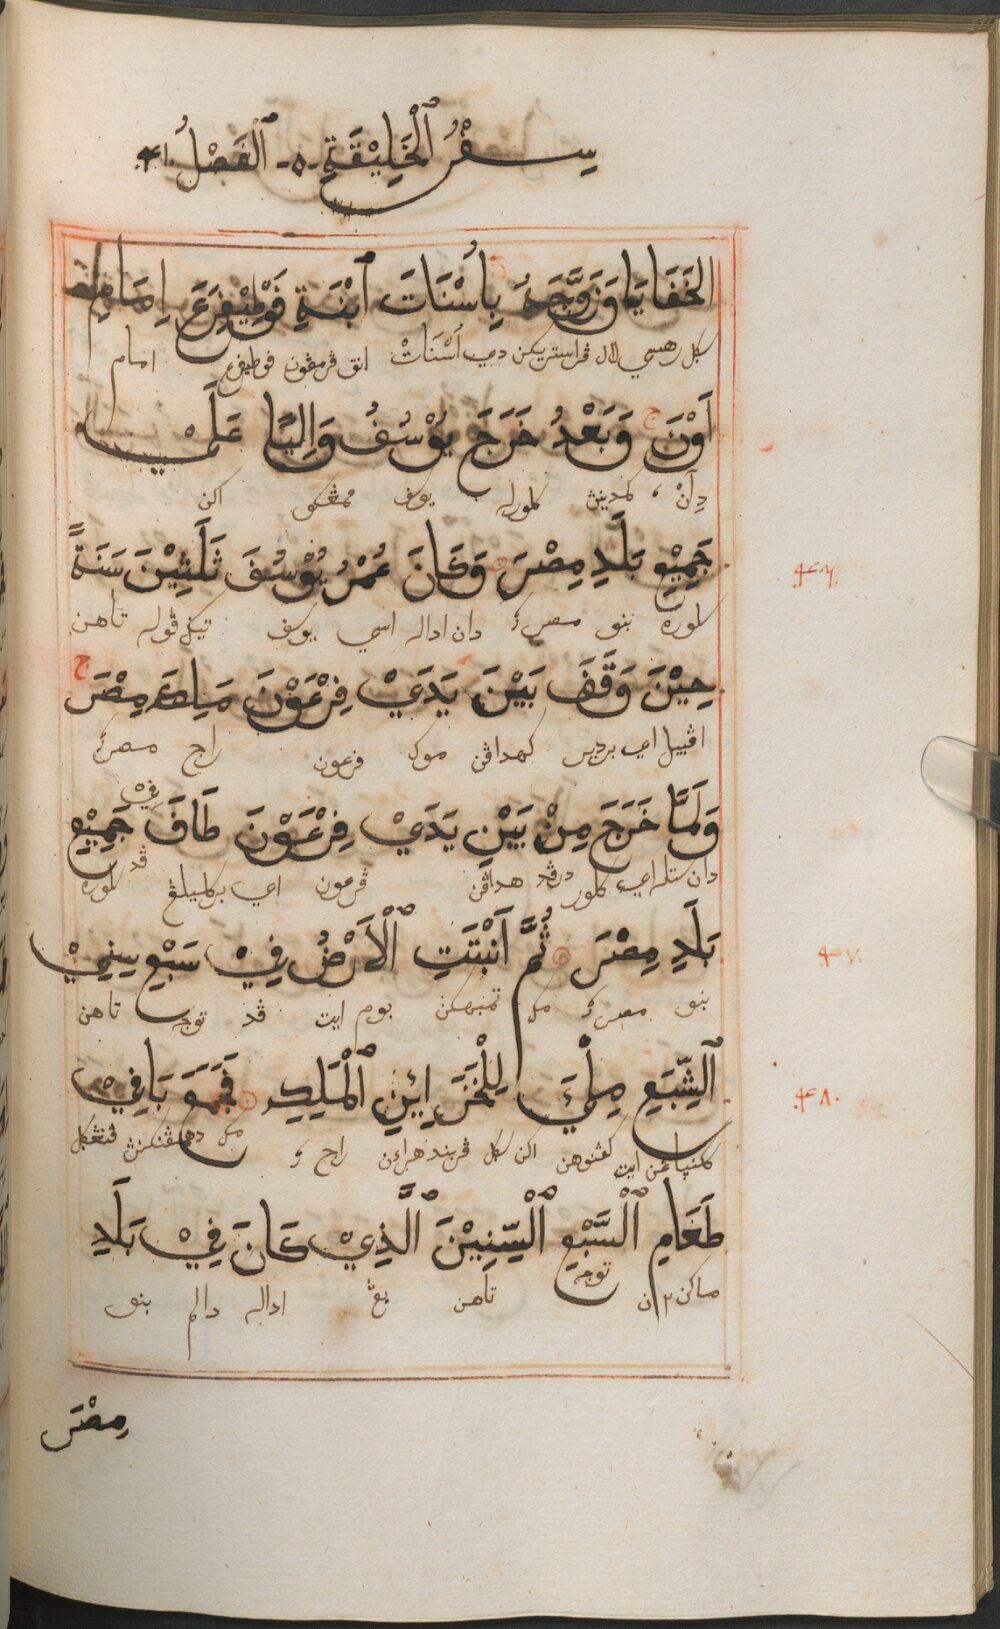 سِفْرُ ٱلْخَلِيْقَةِ -٥- ٱلْفَصْلُ ٤١
الخَفَايَا وَزَوَّجَهُ بِأُسْنَاتَ ٱبْنَةِ فَوْطِيْفِرَعَ اِمَامِ
سكل لال دي أُسْنَاتْ انق فوطيفرع امام
أَوْنَ وَبَعْدُ خَرَجَ يُوْسُفُ وَالِيًا عَلَيْ
دِأَنْ ، كمدين كلوراله يوسف ممڠكو اكن
جَمِيْعِ بَلَدِ مِصْرَ وَكَانَ عُمْرُ يُوْسُفَ ثَلَثِيْنَ سَنَةً
سلوره بنو مصر دان اداله اسي يوسف تيݢ ڤوله تاهن
حِيْنَ وَقَفَ بَيْنَ يَدَيْ فِرْعَوْنَ مَلِكِ مِصْرَ
اڤبيل اي برديري كهداڤن موك فرعون راج مصر
وَلَمَّا خَرَجَ مِنْ بَيْنِ يَدَيْ فِرْعَوْنَ طَافَ فِيْ جَمِيْعِ
دان ستله اي كلور درڤد هداڤن ڤرعون اي بركليلڠ ڤد سلوره
بَلَدِ مِصْرَ ثُمَّ اَنْبَتَتِ ٱلْأَرْضُ فِيْ سَبْعِ سِنِيْ
بنو مصر مك تمبهكن بوم ايت ڤد توجه تاهن
ٱلشِّبَعِ مِلْئَ لِلْخَزَائِنِ ٱلْمَلِكِ فَجَمَعَ بَاقِيْ
ايت اكن سكل راج مك
طَعَامِ ٱلْسَّبْعِ ٱلْسِّنِيْنَ ٱلَّذِيْ كَانَ فِيْ بَلَدِ
ماكن٢ن توجه تاهن يڠ اداله دالم بنو
مِصْرَ
٤٦
٤٧
٤٨